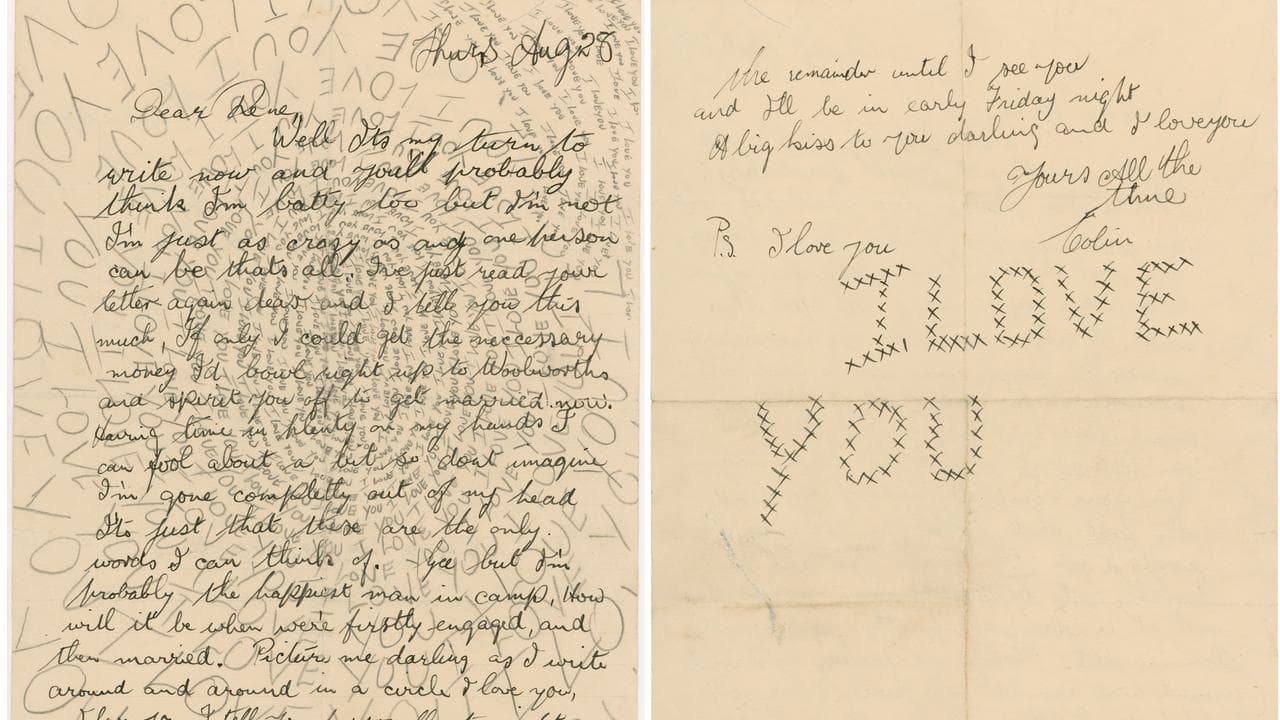 Thurs Aug 28
Dear Rene,
Well Its my turn to
write now and youll probably
think I'm batty too but I'm not
I'm just as crazy as any one person
can be thats all. I've just read your
letter again dear and I tell you this
much, If only I could get the neccessary
money I'd bowl right up to Woolworths
and spirit you off to get married now.
Having time in plenty on my hands I
can fool about a bit, so dont imagine
I'm gone completly out of my head
Its just that these are the only
words I can think of. Gee but I'm
probably the happiest man in camp, How
will it be when we're firstly engaged, and
then married. Picture me darling as I write
around and around in a circle I love you,
I love you I tell you
the remainder until I see you
and I'll be in early Friday night
A big kiss to you darling and I love you
Yours All the
time
Colin
P.S I love you
I LOVE
YOU